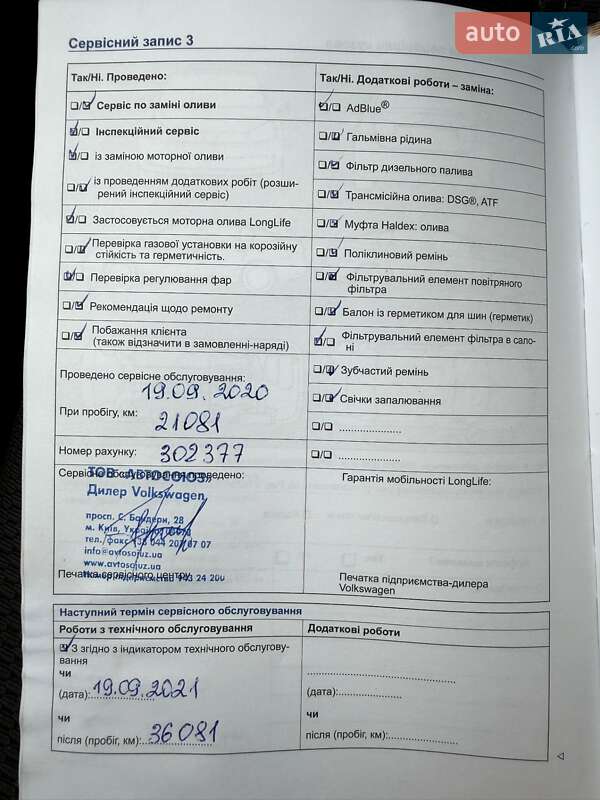 auto RIA.com
Сервісний запис 3
Так/Ні. Проведено:
❑/❑ Сервіс по заміні оливи
❑/❑ Інспекційний сервіс
❑/❑ із заміною моторної оливи
❑/❑ із проведенням додаткових робіт (розши-
рений інспекційний сервіс)
❑/❑ Застосовується моторна олива LongLife
❑/❑ Перевірка газової установки на корозійну
стійкість та герметичність.
❑/❑ Перевірка регулювання фар
❑/❑ Рекомендація щодо ремонту
❑/❑ Побажання клієнта
(також відзначити в замовленні-наряді)
Проведено сервісне обслуговування:
19.09.2020
При пробігу, км:
21081
Номер рахунку: 302377
Сервісне обслуговування проведено:
ТОВ «АВТОСОЮЗ»
Дилер Volkswagen
просп. С. Бандери, 28
м. Київ, Україна
тел./факс +38 044 207 07 07
info@avtosojuz.ua
www.avtosojuz.ua
Печатка сервісного центру
Номер підприємства 143 24 200
Так/Ні. Додаткові роботи – заміна:
❑/❑ AdBlue®
❑/❑ Гальмівна рідина
❑/❑ Фільтр дизельного палива
❑/❑ Трансмісійна олива: DSG®, ATF
❑/❑ Муфта Haldex: олива
❑/❑ Поліклиновий ремінь
❑/❑ Фільтрувальний елемент повітряного
фільтра
❑/❑ Балон із герметиком для шин (герметик)
❑/❑ Фільтрувальний елемент фільтра в сало-
ні
❑/❑ Зубчастий ремінь
❑/❑ Свічки запалювання
❑/❑ ......................
❑/❑ ......................
Гарантія мобільності LongLife:
Печатка підприємства-дилера
Volkswagen
Наступний термін сервісного обслуговування
Роботи з технічного обслуговування
❑ З згідно з індикатором технічного обслугову-
вання
чи
(дата): 19.09.2021
чи
після (пробіг, км): 36081
Додаткові роботи
......................
(дата):......................
чи
після (пробіг, км):......................